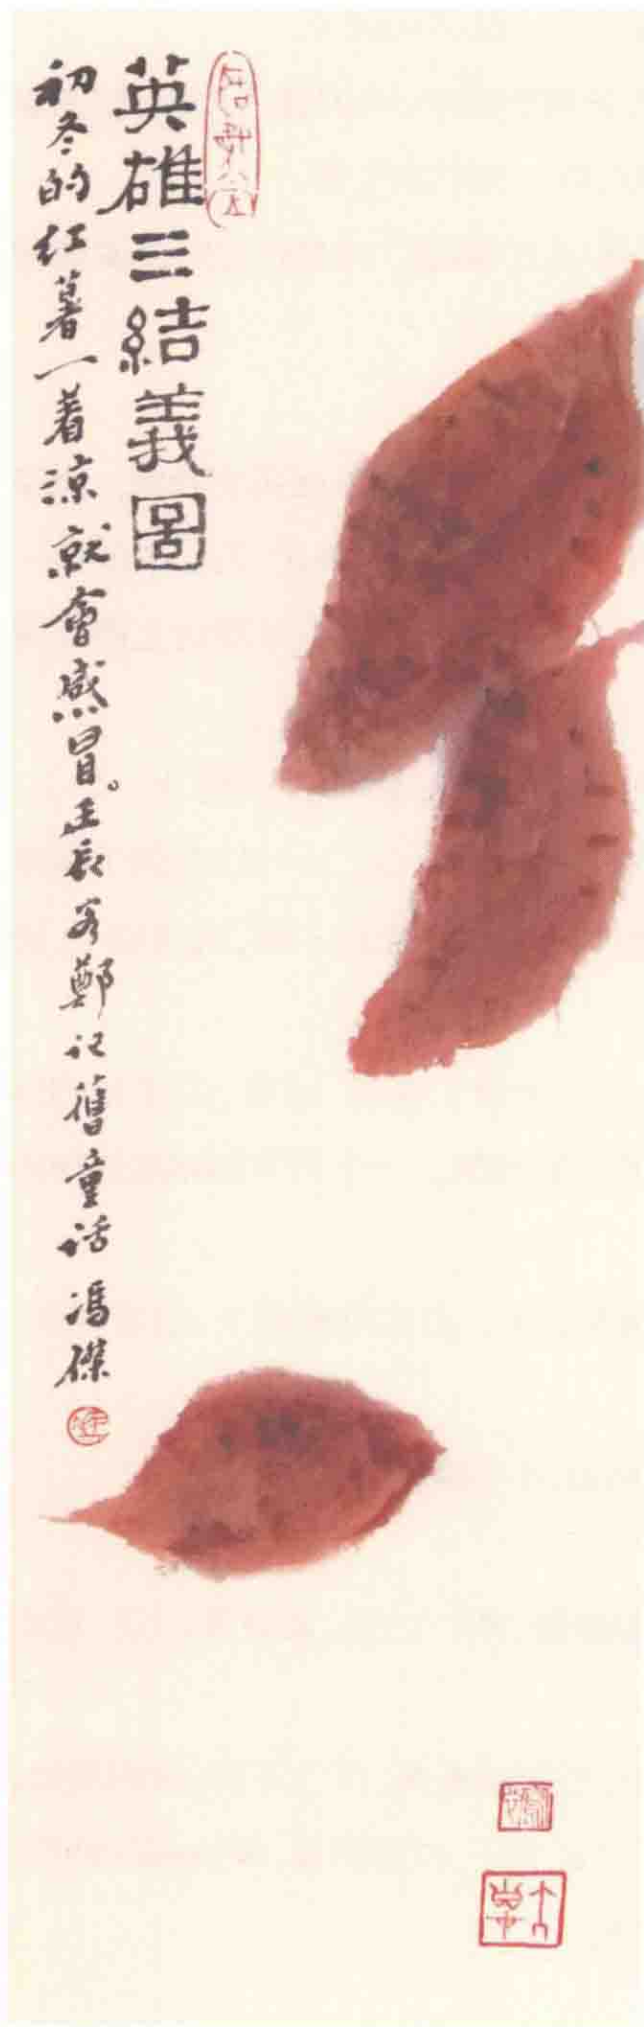 英雄三結義圖
初冬的红薯一着涼就會感冒。壬辰客鄭记舊童话 馮傑